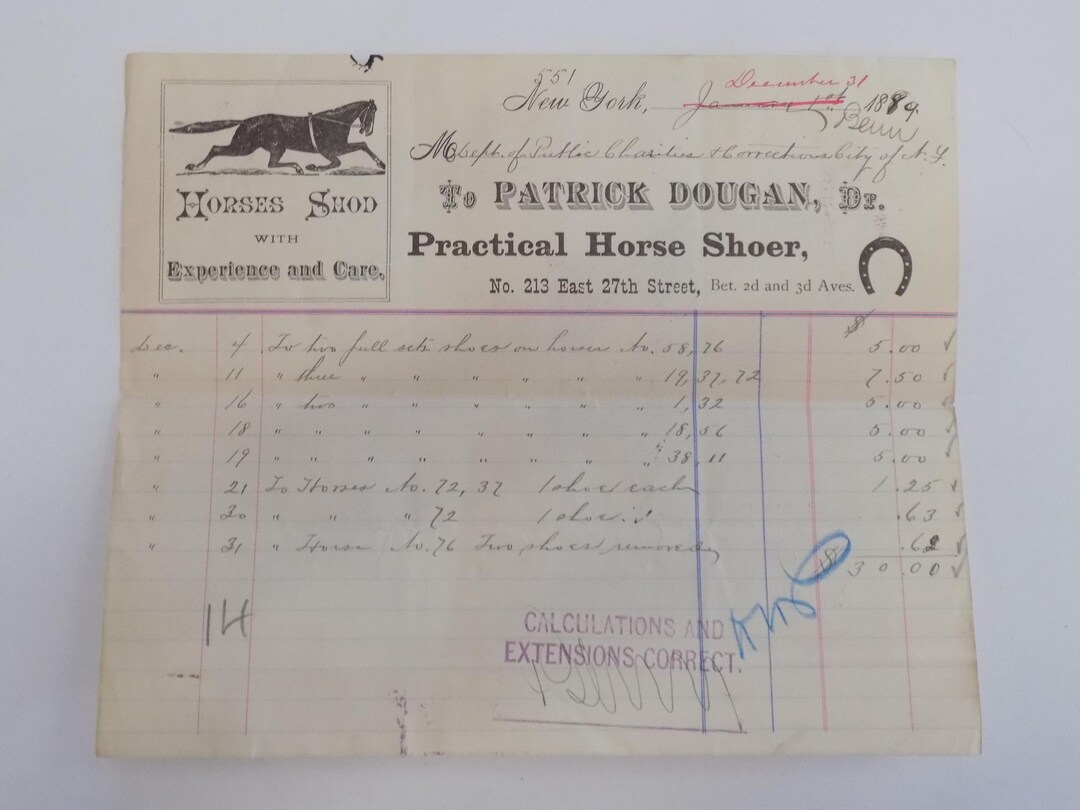 551
December 31
New York, January 1st 1889.
Benn
M Dept. of Public Charities & Corrections City of N.Y.
To PATRICK DOUGAN, Dr.
Practical Horse Shoer,
No. 213 East 27th Street, Bet. 2d and 3d Aves.
HORSES SHOD
WITH
Experience and Care.
$
Dec. 4 To two full sets shoes on horses No. 58, 76 5.00
" 11 " three " " " " " " 19, 37, 72 7.50
" 16 " two " " " " " " 1, 32 5.00
" 18 " " " " " " " " 18, 56 5.00
" 19 " " " " " " " " 38, 11 5.00
" 21 To Horses No. 72, 37 1 shoe each 1.25
" 30 " " " 72 1 shoe .63
" 31 " Horse No. 76 Two shoes removed .62
$ 30.00
14
CALCULATIONS AND
EXTENSIONS CORRECT.